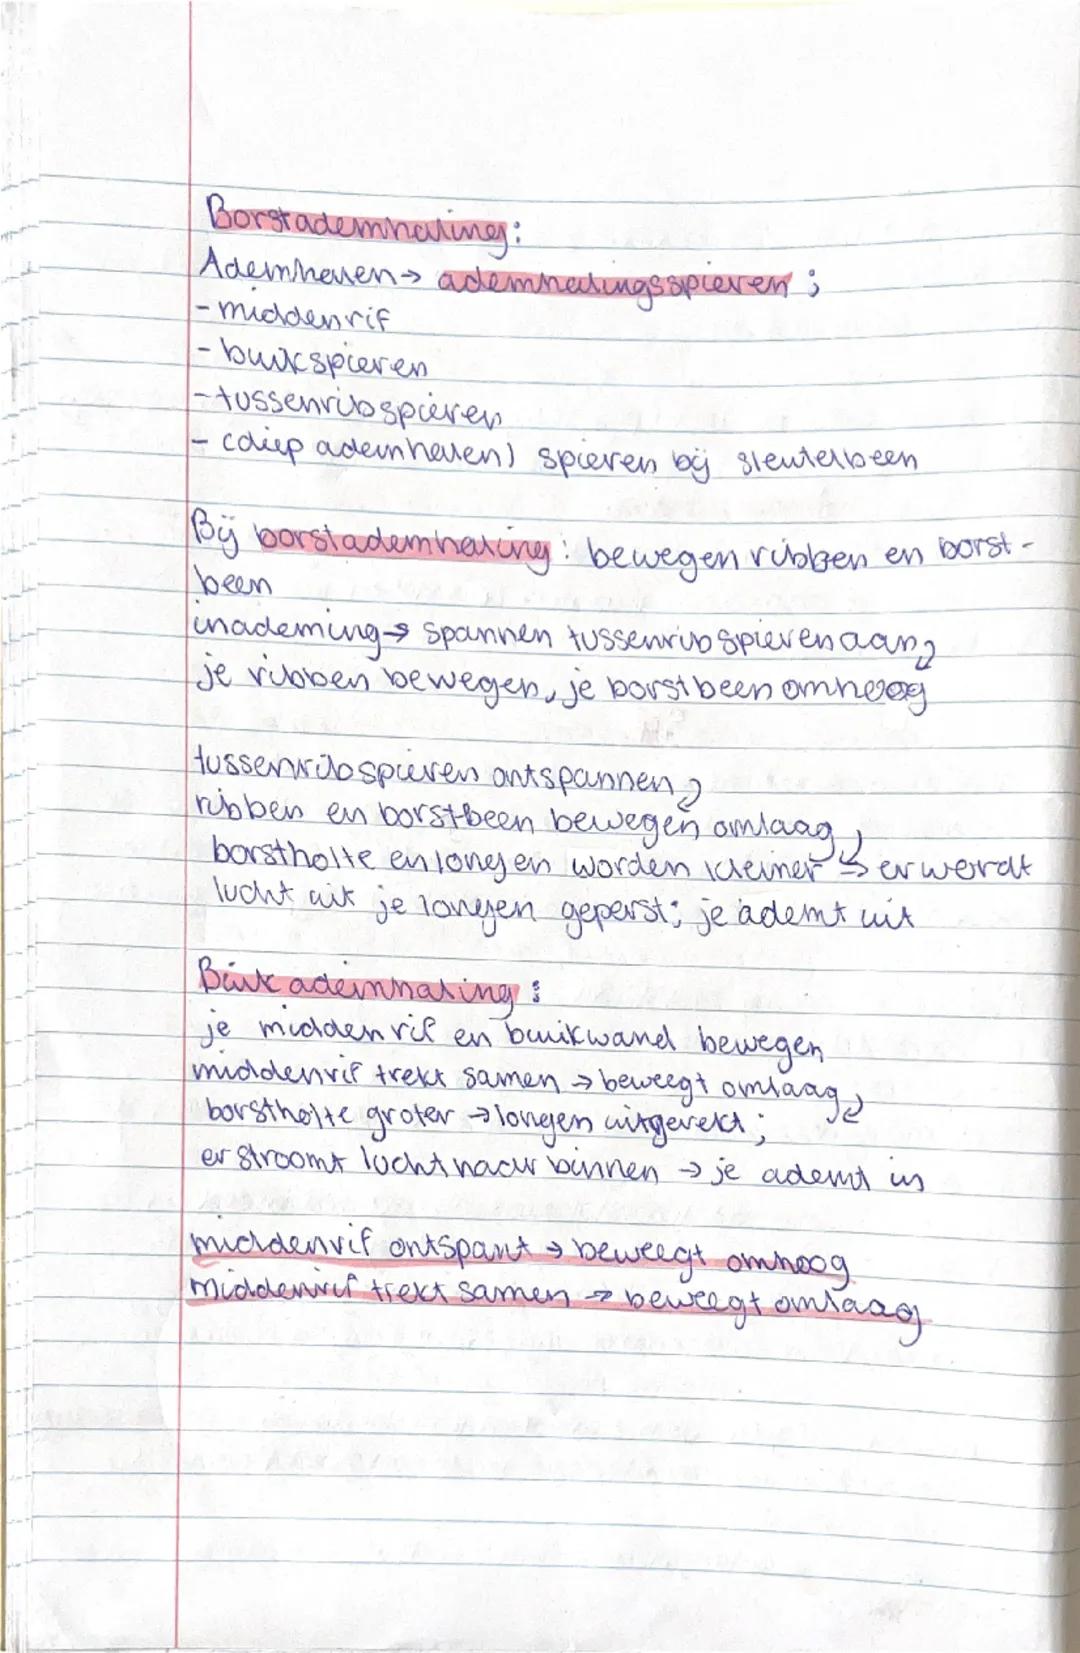 Borstademhaling:
Ademhalen → ademhalingsspieren;
- middenrif
- buikspieren
- tussenribspieren
- (diep ademhalen) spieren bij sleutelbeen
Bij borstademhaling: bewegen ribben en borst-
been
inademing → spannen tussenribspieren aan
je ribben bewegen, je borstbeen omhoog
tussenribspieren ontspannen
ribben en borstbeen bewegen omlaag
borstholte en longen worden kleiner → er wordt
lucht uit je longen geperst; je ademt uit
Buikademhaling:
je middenrif en buikwand bewegen
middenrif trekt samen → beweegt omlaag
borstholte groter → longen uitgerekt;
er stroomt lucht naar binnen → je ademt in
middenrif ontspant → beweegt omhoog
middenrif trekt samen → beweegt omlaag